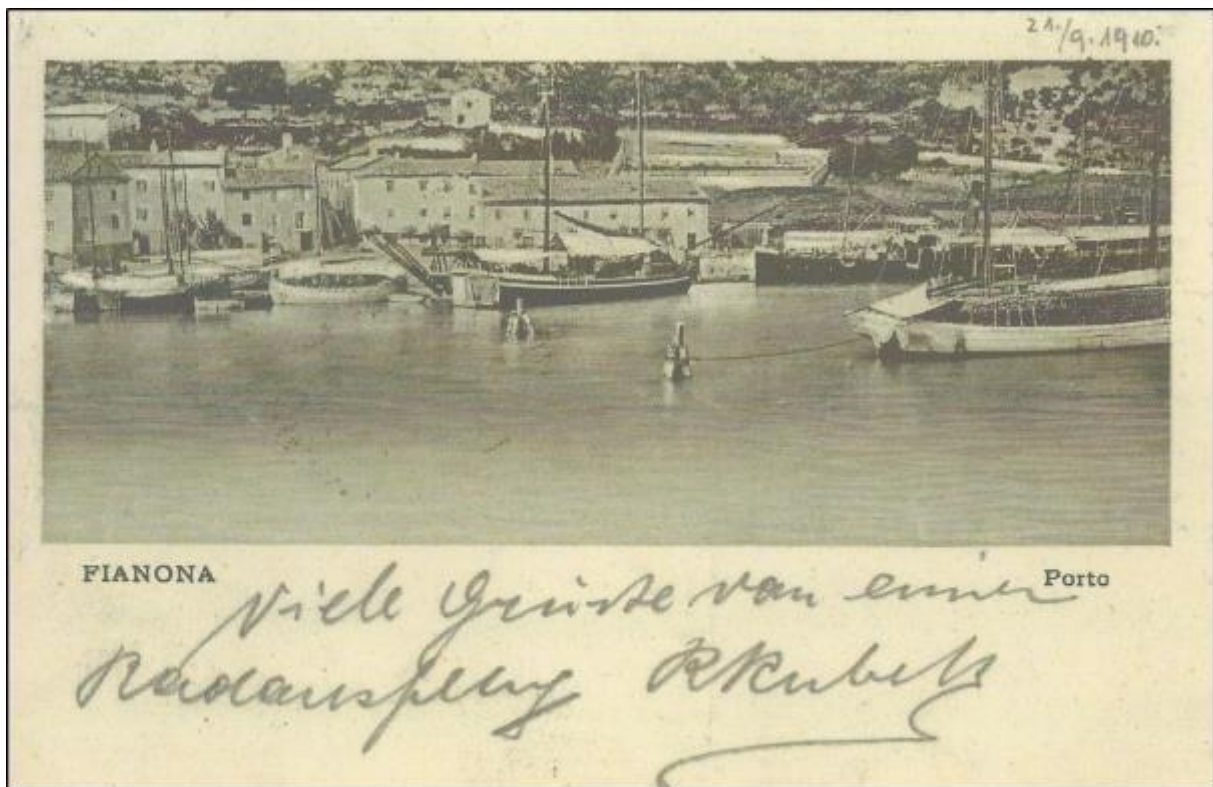 21./9.1910.
FIANONA
Porto
Viele Grüsse von einem
Radausflug